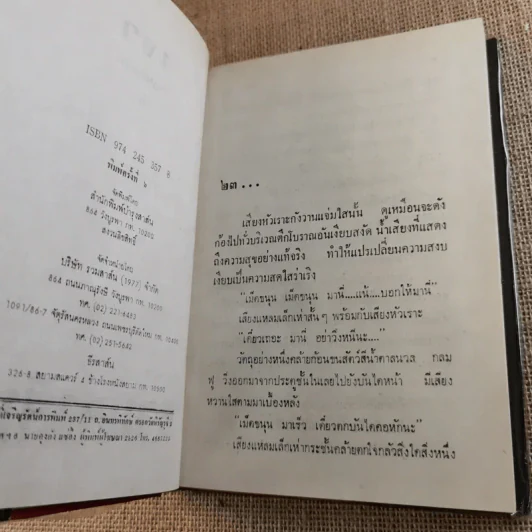 ISBN 974 245 357 8
พิมพ์ครั้งที่ ๒
จัดพิมพ์โดย
สำนักพิมพ์บำรุงสาส์น
864 วังบูรพา กท. 10200
สงวนลิขสิทธิ์
จัดจำหน่ายโดย
บริษัท รวมสาส์น (1977) จำกัด
864 ถนนภาณุรังษี วังบูรพา กท. 10200
ทศ. (02) 221-6483
1091/86-7 จัตุรัสนครหลวง ถนนเพชรบุรีตัดใหม่ กท. 10400
ทศ. (02) 251-5682
ธีรสาส์น
326-8 สยามสแควร์ 4 ข้างโรงหนังสยาม กท. 10500
๒๓...
เสียงหัวเราะกังวานแจ่มใสนั้น ดูเหมือนจะดัง
ก้องไปทั่วบริเวณตึกโบราณอันเงียบสงัด น้ำเสียงที่แสดง
ถึงความสุขอย่างแท้จริง ทำให้แปรเปลี่ยนความสงบ
เงียบเป็นความสดใสร่าเริง
“เม็ดขนุน เม็ดขนุน มานี่....แน้....บอกให้มานี่”
เสียงแหลมเล็กเห่าสั้น ๆ พร้อมกับเสียงหัวเราะ
“เดี๋ยวเถอะ มานี่ อย่าวิ่งหนีนะ....”
วัตถุอย่างหนึ่งคล้ายก้อนขนสัตว์สีน้ำตาลนวล กลม
ฟู วิ่งออกมาจากประตูชั้นในเลยไปยังบันไดหน้า มีเสียง
หวานใสตามมาเบื้องหลัง
“เม็ดขนุน มาเร็ว เดี๋ยวตกบันไดคอหักนะ”
เสียงแหลมเล็กเห่ากระชั้นคล้ายตกใจกลัวสิ่งใดสิ่งหนึ่ง